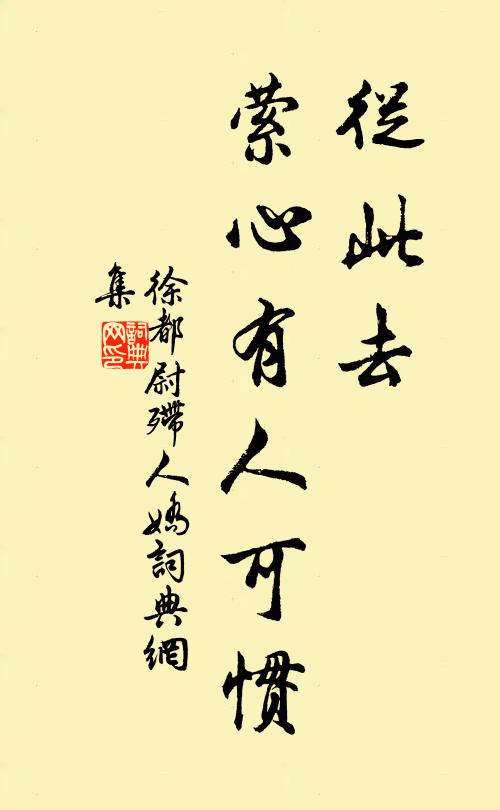 從此去
縈心有人可慣
徐都尉殢人嬌詞典網
集
詞典
网印